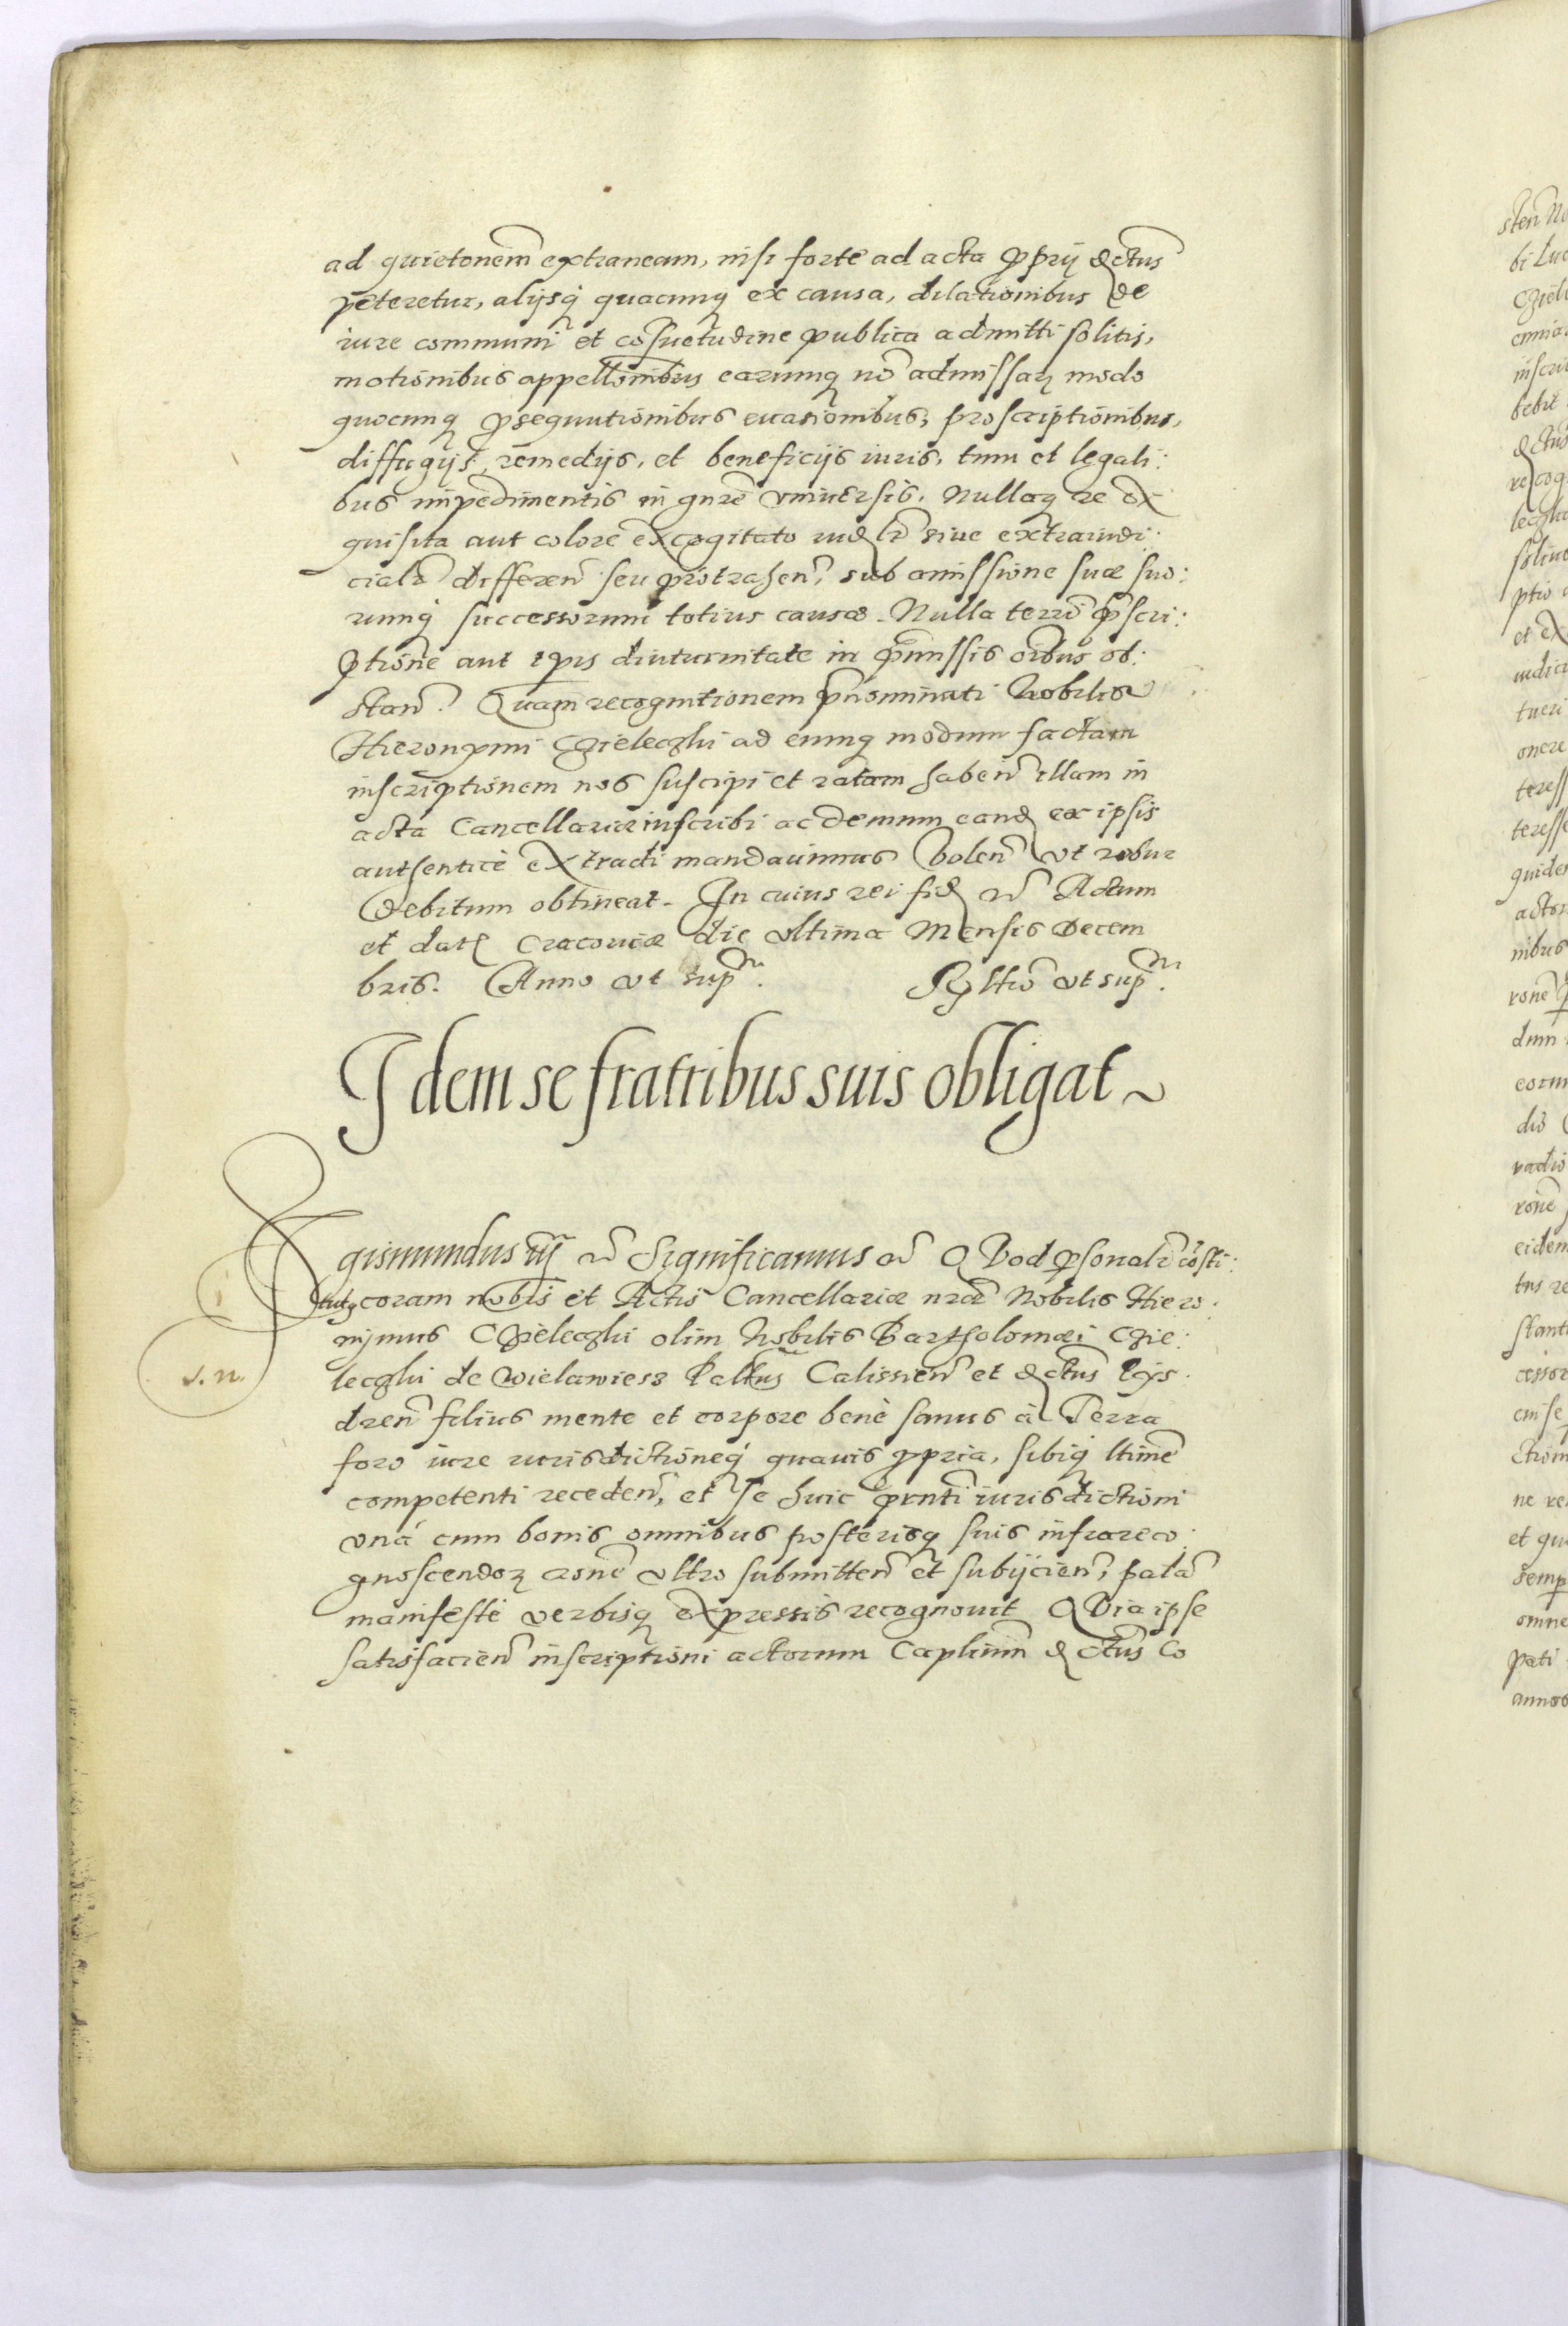 ad quietonem extraneam, nisi forte ad acta pprij dctus
peteretur, alijsq quacunq ex causa, dilationibus de
iure communi et cosuetudine publica admitti solitis,
motionibus appellonibus earumq no admissaꝝ modo
quocunq psequutionibus euasionibus, proscriptionibus,
diffugijs, remedijs, et beneficijs iuris, tum et legali:
bus impedimentis in gnre vniuersis. Nullaq re ex
quisita aut colore excogitato iudlr siue extraiudi:
cialr differen seu protrahen, sub amissione suæ suo:
rumq successorum totius causæ. Nulla terrō pscri:
ptione aut tpis diuturnitate in pmissis oibus ob:
stan. Quam recognitionem pnominati Nobilis
Hieronymi Czieleczki ad eumq modum factam
inscriptionem nos suscipi et ratam haben illam in
acta Cancellariæ inscribi ac demum eand ex ipsis
authenticè extradi mandauimus Volen vt robur
debitum obtineat. In cuius rei fid Actum
et dat Cracouiæ die vltima Mensis Decem
bris. Anno vt sup. Rltio vt sup.
Idem se fratribus suis obligat
Sigismundus iij Significamus Quod psonalr costi:
tutq coram nobis et Actis Cancellariæ nræ Nobilis Hiero:
nijmus Czieleczki olim Nobilis Bartholomæi Czie:
leczki de Wielawiesz Paltus Calissien et dctus
dren filius mente et corpore benè sanus à Terra
foro iure iurisdictioneq quauis ppria, sibiq ltime
competenti receden, et se huic pnti iurisdictioni
vnà cum bonis omnibus posterisq suis infrareco:
gnoscendoꝝ rone vltro submitten et subijcien, palā
manifestè verbisq expressis recognouit Quia ipse
satisfacien inscriptioni actorum dctus Co
s. n.